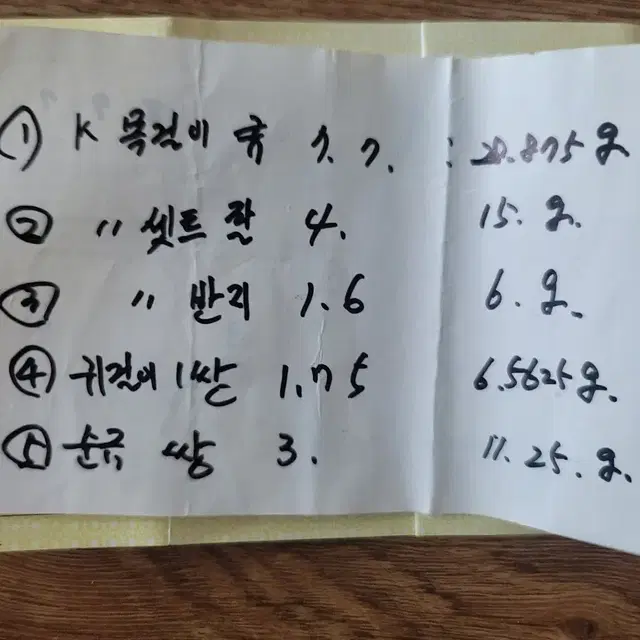 ① K 목걸이 금 7.7. : 28.875g
② 〃 셋트 팔 4. 15.g.
③ 〃 반지 1.6 6.g.
④ 귀걸이 1쌍 1.75 6.5625g.
⑤ 순금 쌍 3. 11.25.g.